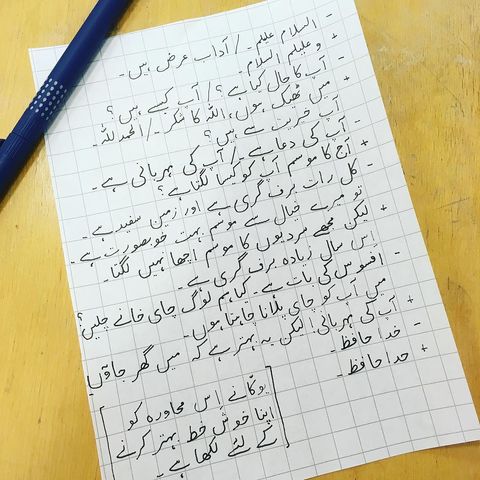 - السلام علیکم۔ / آداب عرض ہیں۔
+ و علیکم السلام۔
- آپ کا حال کیا ہے؟ / آپ کیسے ہیں؟
+ میں ٹھیک ہوں، اللہ کا شکر۔ / الحمد للہ۔
آپ خیریت سے ہیں؟
- آپ کی دعا ہے۔ / آپ کی مہربانی ہے۔
+ آج کا موسم آپ کو کیسا لگتا ہے؟
- کل رات برف گری ہے اور زمین سفید ہے۔
تو میرے خیال سے موسم بہت خوبصورت ہے۔
+ لیکن مجھے سردیوں کا موسم اچھا نہیں لگتا۔
اس سال زیادہ برف گری ہے۔
- افسوس کی بات ہے۔ کیا ہم لوگ چای خانے چلیں؟
میں آپ کو چای پلانا چاہتا ہوں۔
+ آپ کی مہربانی! لیکن یہ بہتر ہے کہ میں گھر جاؤں۔
- خدا حافظ۔
+ خدا حافظ۔
[یوکا نے اس محاورہ کو
اپنا خوش خط بہتر کرنے
کے لئے لکھا ہے۔]